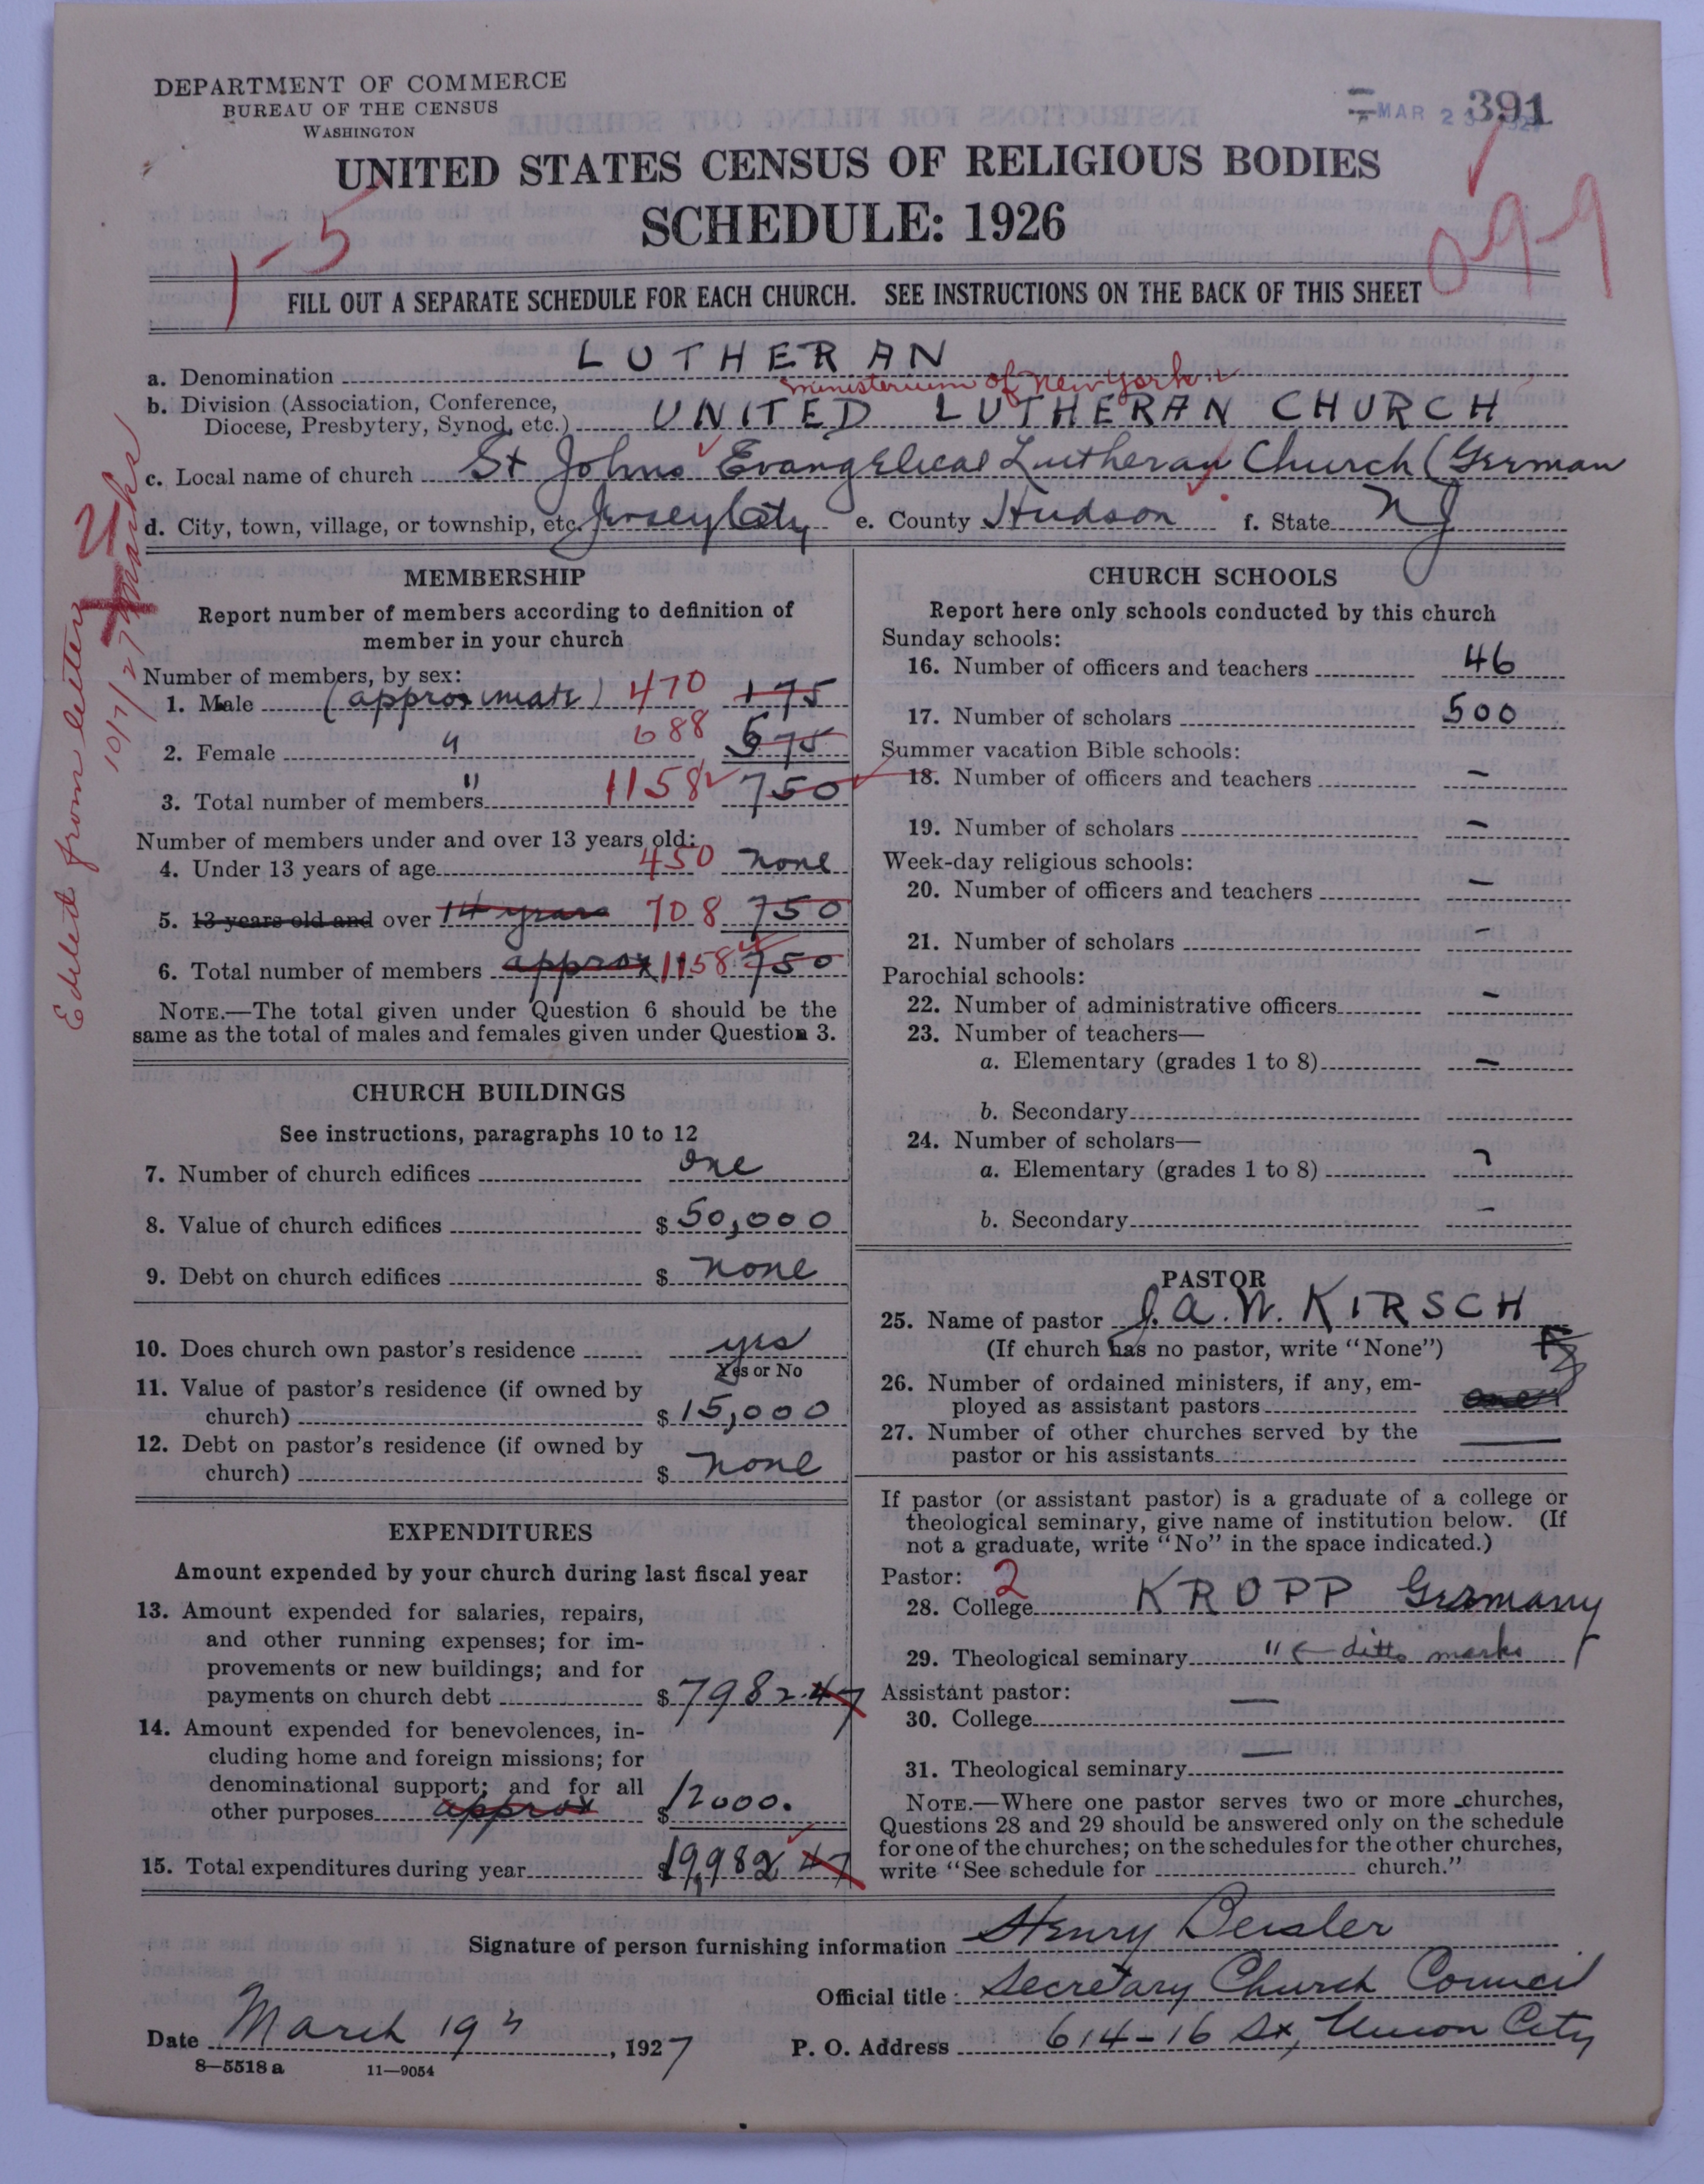 DEPARTMENT OF COMMERCE
BUREAU OF THE CENSUS
WASHINGTON
MAR 2
391
UNITED STATES CENSUS OF RELIGIOUS BODIES
SCHEDULE: 1926
1-5
099
FILL OUT A SEPARATE SCHEDULE FOR EACH CHURCH. SEE INSTRUCTIONS ON THE BACK OF THIS SHEET
a. Denomination LUTHERAN
Ministerium of New York
b. Division (Association, Conference,
Diocese, Presbytery, Synod, etc.) UNITED LUTHERAN CHURCH
c. Local name of church St Johns Evangelical Lutheran Church (German
d. City, town, village, or township, etc. Jersey City e. County Hudson f. State NJ
Edited from letter
10/7/27 Marks
MEMBERSHIP
Report number of members according to definition of
member in your church
Number of members, by sex:
1. Male (approximate) 470 175
2. Female " 688 575
3. Total number of members " 1158 750
Number of members under and over 13 years old:
4. Under 13 years of age 450 none
5. 13 years old and over 14 years 708 750
6. Total number of members approx 1158 750
NOTE.—The total given under Question 6 should be the
same as the total of males and females given under Question 3.
CHURCH BUILDINGS
See instructions, paragraphs 10 to 12
7. Number of church edifices one
8. Value of church edifices $ 50,000
9. Debt on church edifices $ none
10. Does church own pastor's residence yes
Yes or No
11. Value of pastor's residence (if owned by
church) $ 15,000
12. Debt on pastor's residence (if owned by
church) $ none
EXPENDITURES
Amount expended by your church during last fiscal year
13. Amount expended for salaries, repairs,
and other running expenses; for im-
provements or new buildings; and for
payments on church debt $ 7982.47
14. Amount expended for benevolences, in-
cluding home and foreign missions; for
denominational support; and for all
other purposes approx $ 12000.
15. Total expenditures during year $ 19,982 47
CHURCH SCHOOLS
Report here only schools conducted by this church
Sunday schools:
16. Number of officers and teachers 46
17. Number of scholars 500
Summer vacation Bible schools:
18. Number of officers and teachers —
19. Number of scholars —
Week-day religious schools:
20. Number of officers and teachers —
21. Number of scholars -
Parochial schools:
22. Number of administrative officers —
23. Number of teachers—
a. Elementary (grades 1 to 8) —
b. Secondary
24. Number of scholars—
a. Elementary (grades 1 to 8)
b. Secondary —
PASTOR
25. Name of pastor J. A. W. KIRSCH
(If church has no pastor, write "None")
26. Number of ordained ministers, if any, em-
ployed as assistant pastors
27. Number of other churches served by the
pastor or his assistants —
If pastor (or assistant pastor) is a graduate of a college or
theological seminary, give name of institution below. (If
not a graduate, write "No" in the space indicated.)
Pastor: 2
28. College KROPP Germany
29. Theological seminary " ← ditto marks
Assistant pastor:
30. College —
31. Theological seminary —
NOTE.—Where one pastor serves two or more churches,
Questions 28 and 29 should be answered only on the schedule
for one of the churches; on the schedules for the other churches,
write "See schedule for church."
Signature of person furnishing information Henry Beisler
Official title: Secretary Church Council
Date March 19, 1927 P. O. Address 614-16 St, Union City
8—5518 a 11—9054